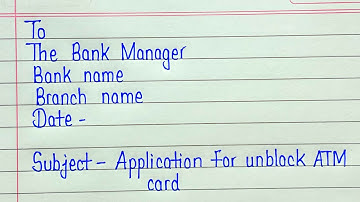 To
The Bank Manager
Bank name
Branch name
Date -
Subject - Application For unblock ATM
card